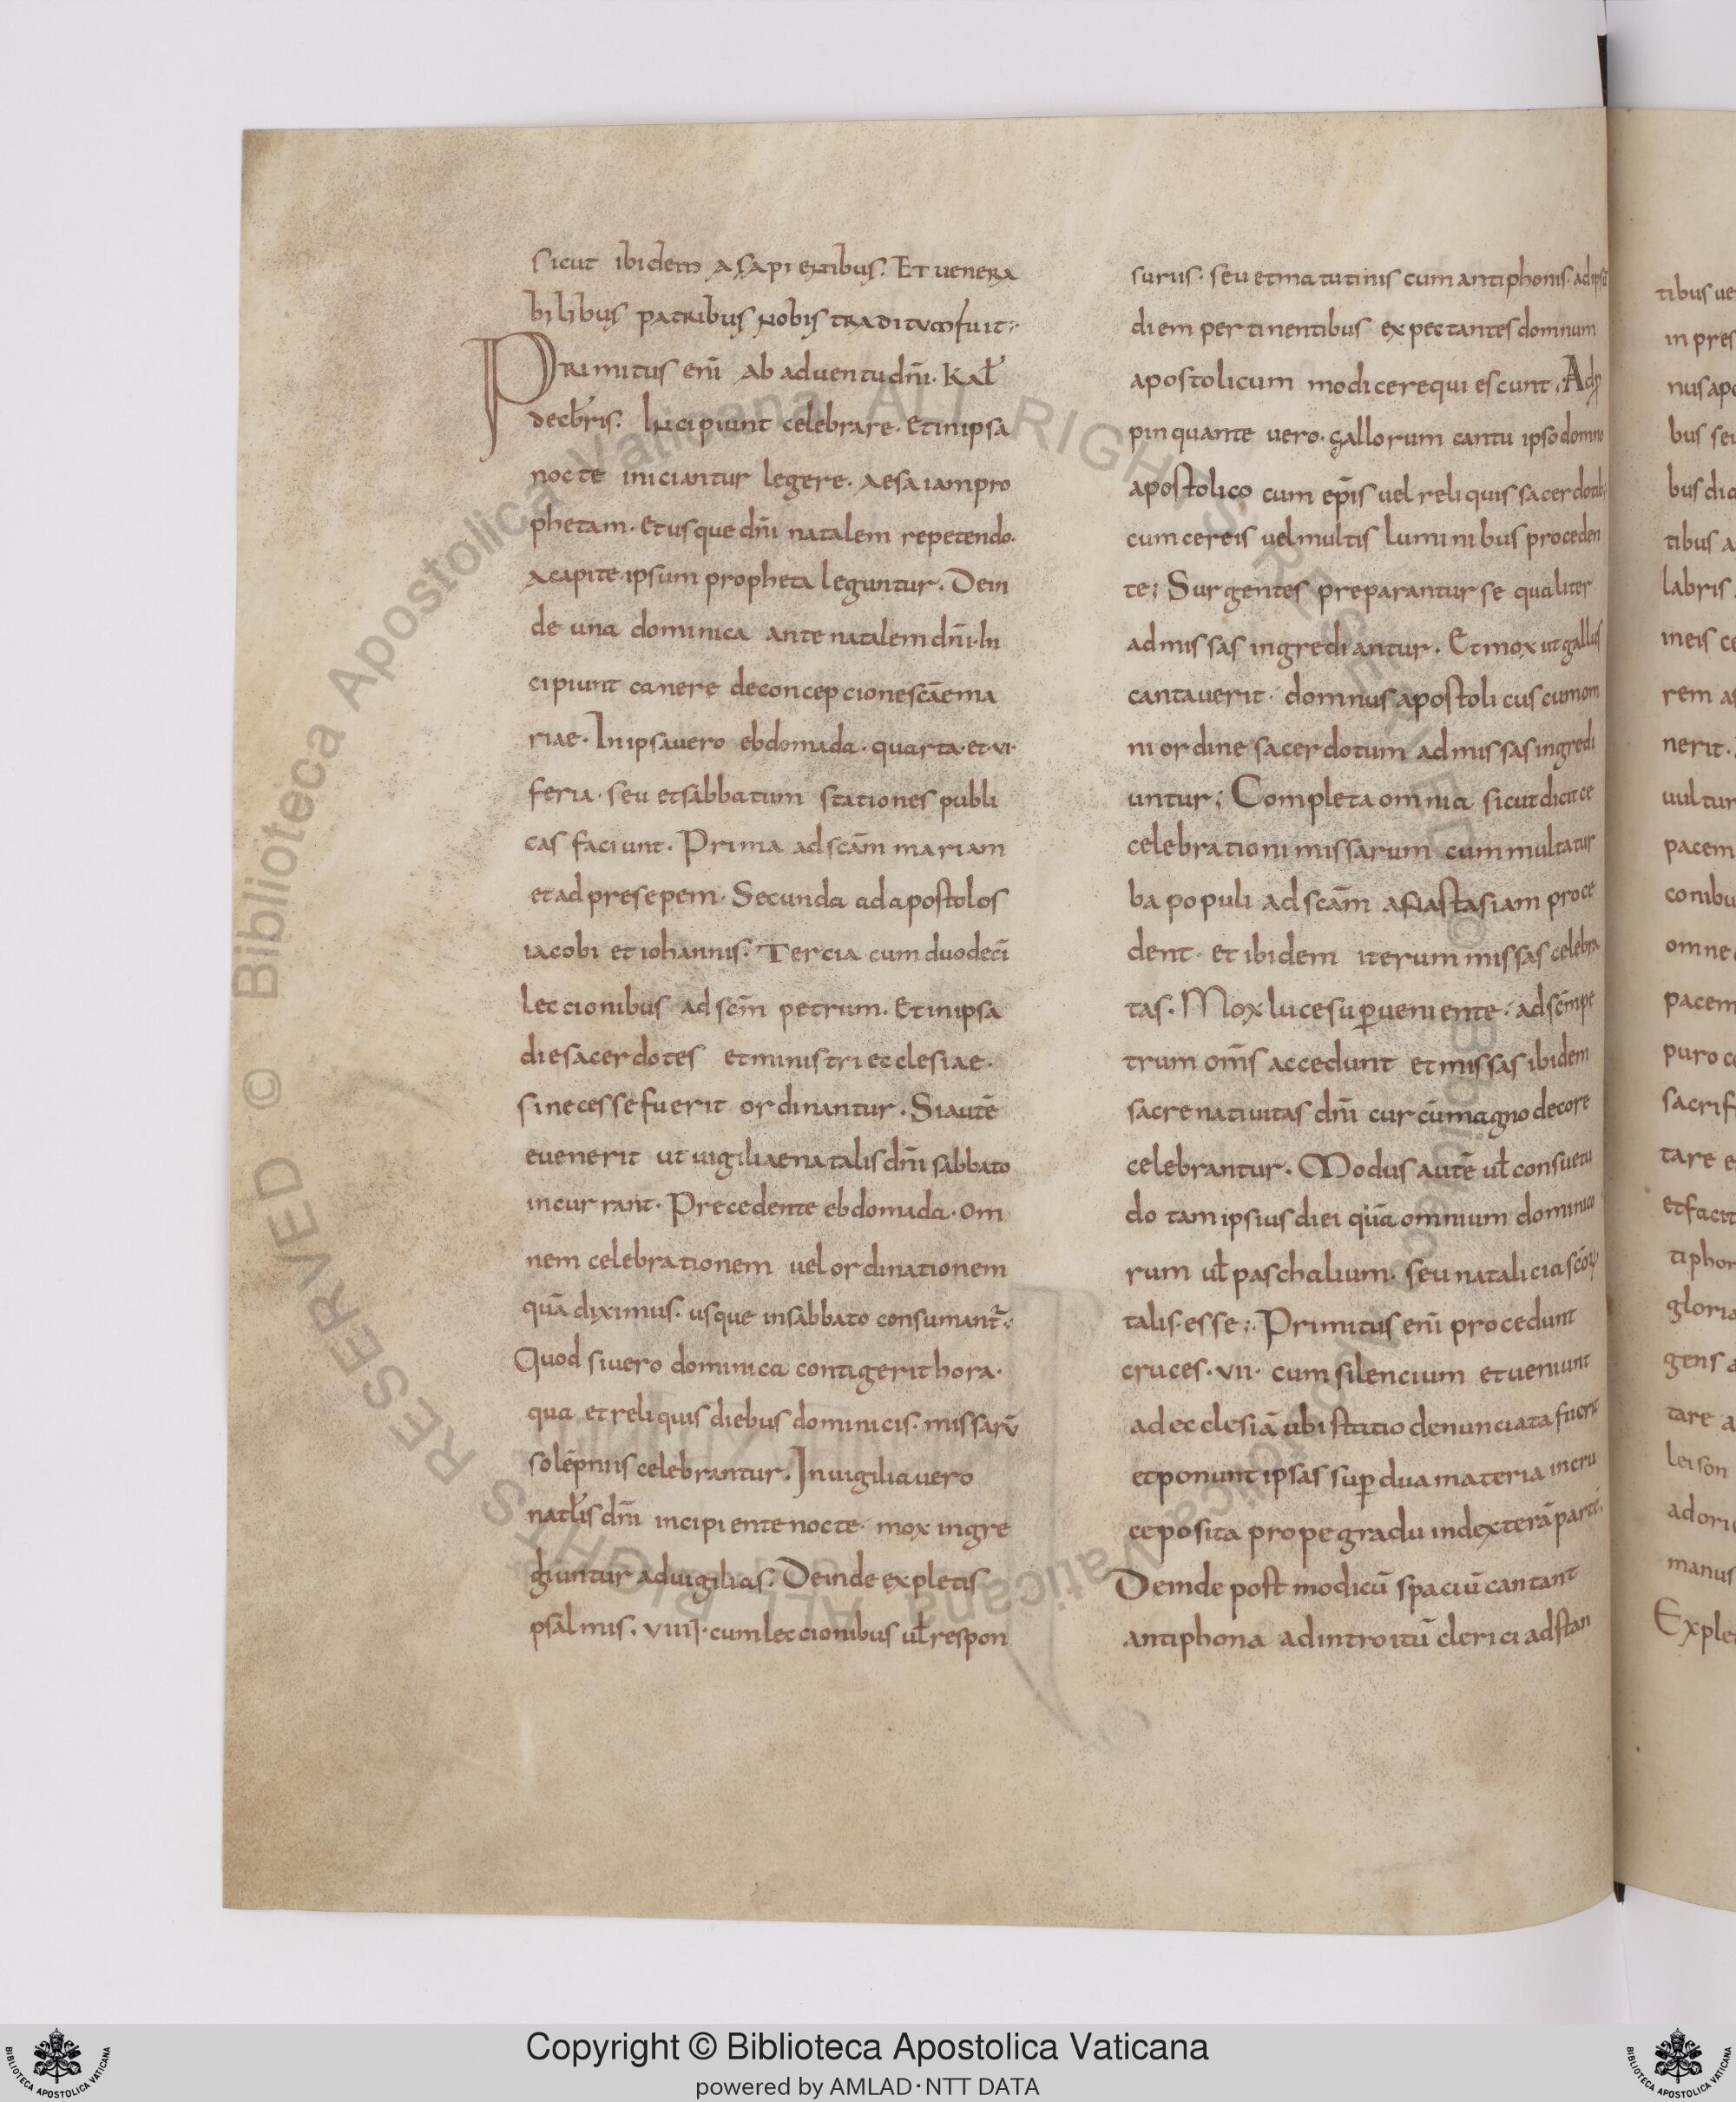 sicut ibidem a sapientibus. Et venera
bilibus patribus nobis traditum fuit;
Primitus enī ab adventu dn̄i. Kał
decb̄ris. Incipiunt celebrare. Et in ipsa
nocte iniciantur legere. aesaiam pro
phetam. et usque dn̄i natalem repetendo.
a capite ipsum propheta leguntur. Dein
de una dominica ante natalem dn̄i. In
cipiunt canere de concepcione scāe ma
riae. In ipsa uero ebdomada. quarta. et. vi.
feria. seu et sabbatum stationes publi
cas faciunt. Prima ad scām mariam
et ad presepem. Secunda ad apostolos
iacobi et iohannis. Tercia cum duodecī
leccionibus ad scm̄ petrum. Et in ipsa
die sacerdotes et ministri ecclesiae.
si necesse fuerit ordinantur. Si autē
euenerit ut uigiliae natalis dn̄i sabbato
incurrant. Precedente ebdomada. om
nem celebrationem uel ordinationem
quā diximus. usque in sabbato consumant̄;
Quod si uero dominica contigerit hora.
qua et reliquis diebus dominicis. missarū
solēpniis celebrantur. In uigilia uero
natłis dn̄i incipiente nocte. mox ingre
diuntur ad uigilias. Deinde expletis
psalmis. viiij. cum leccionibus uł respon
suriis. seu et matutinis cum antiphonis. ad ipsū
diem pertinentibus expectantes domnum
apostolicum modice requiescunt. Adp
pinquante uero. gallorum cantu ipso domno
apostolico cum ep̄is uel reliquis sacerdotib;
cum cereis uel multis luminibus proceden
te; Surgentes preparantur se qualiter
ad missas ingrediantur. Et mox ut gallus
cantauerit. domnus apostolicus cum om
ni ordine sacerdotum ad missas ingredi
untur; Completa omnia sicut dicit ce
celebrationi missarum cum multa tur
ba populi ad scām anastasiam proce
dent. et ibidem iterum missas celebra
tas. Mox luce sup̄ueniente. ad scm̄ pe
trum om̄s accedunt et missas ibidem
sacre natiuitas dn̄i cur cū magno decore
celebrantur. Modus autē uł consuetu
do tam ipsius diei quā omnium dominico
rum uł paschalium. seu natalicia scōꝝ
talis. esse; Primitus enī procedunt
cruces. vii. cum silencium et ueniunt
ad ecclesiā ubi statio denunciata fuerit
et ponunt ipsas sup̄ dua materia in cru
ce posita prope gradu in dexterā partē.
Deinde post modicū spaciū cantant
antiphona ad introitū clerici adstan
tibus ue
in pres
nus apo
bus seu
bus dia
tibus a
labris
ineis ce
rem as
nerit.
uultur
pacem
conibu
omne
pacem
puro co
sacrif
tare e
et facit
tiphon
gloria
gens a
tare a
leison
ad ori
manus
Exple
© Biblioteca Apostolica Vaticana ALL RIGHTS RESERVED © Biblioteca Apostolica Vaticana ALL RIGHTS RESERVED
Copyright © Biblioteca Apostolica Vaticana
powered by AMLAD·NTT DATA
BIBLIOTECA APOSTOLICA VATICANA
BIBLIOTECA APOSTOLICA VATICANA